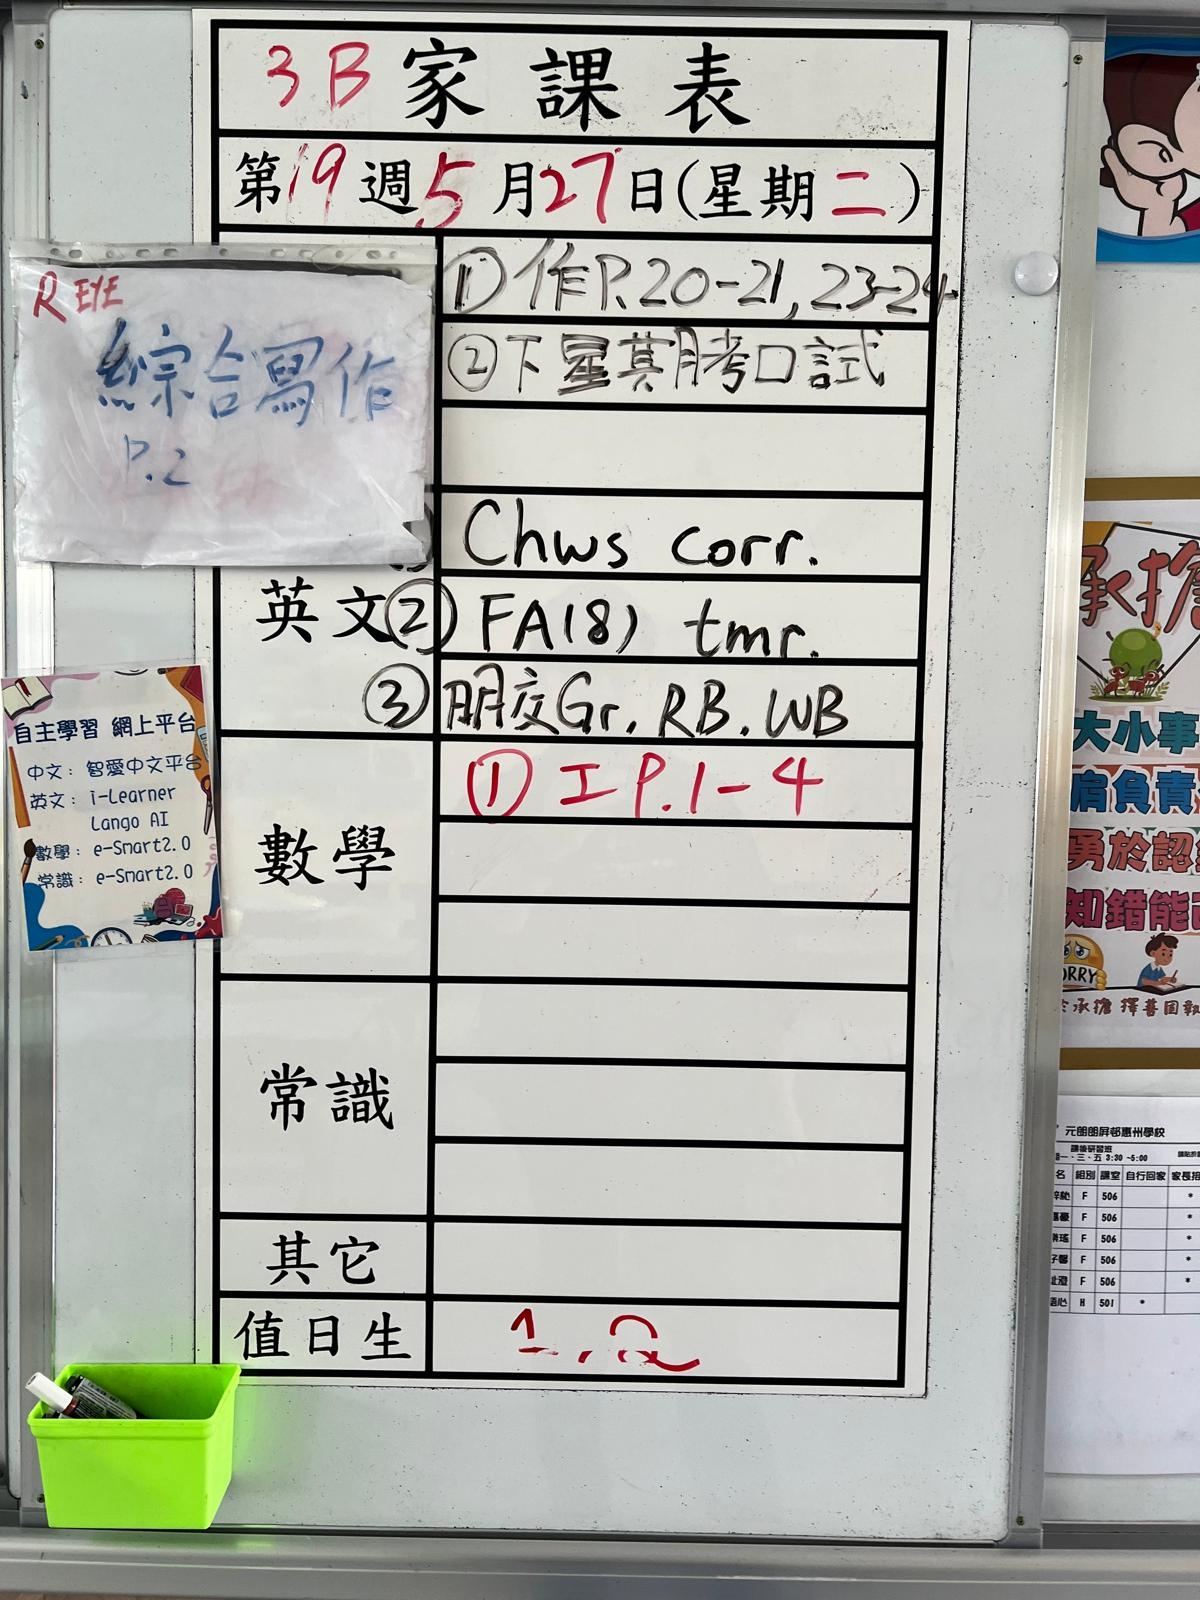 3B 家課表
第19週5月27日(星期二)
R EYE
綜合寫作
P.2
① 作P.20-21, 23-24
② 下星其月考口試
英文
Chws corr.
② FA(8) tmr.
③ 明交Gr. RB. WB
數學
① 工 P.1-4
常識
其它
值日生
1, 2
自主學習 網上平台
中文: 智愛中文平台
英文: i-Learner
Lango AI
數學: e-Smart2.0
常識: e-Smart2.0
承擔
大小事
肩負責
勇於認
知錯能
ORRY
承擔 擇善固執
元朗朗屏邨惠州學校
課後研習班
一、三、五 3:30 ~5:00
名 組別 課室 自行回家 家長接
F 506 *
F 506 *
F 506 *
F 506 *
F 506 *
H 501 *